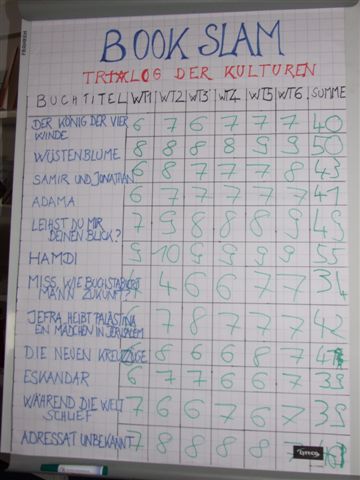 BOOK SLAM
TRIALOG DER KULTUREN
BUCHTITEL WT1 WT2 WT3 WT4 WT5 WT6 SUMME
DER KÖNIG DER VIER
WINDE 6 7 6 7 7 7 40
WÜSTENBLUME 8 8 8 8 9 9 50
SAMIR UND JONATHAN 6 8 7 7 7 8 43
ADAMA 6 7 7 7 7 7 41
LEIHST DU MIR
DEINEN BLICK? 7 9 8 8 8 9 49
HAMDI 9 10 9 9 9 9 55
MISS, WIE BUCHSTABIERT
MANN ZUKUNFT? 4 6 6 7 7 34
JEFRA HEIßT PALÄSTINA
EIN MÄDCHEN IN JERUSALEM 7 8 7 7 7 42
DIE NEUEN KREUZZÜGE 8 6 6 8 7
ESKANDAR 6 7 7 6 6 7 39
WÄHREND DIE WELT
SCHLIEF 7 6 6 7 6 7 39
ADRESSAT UNBEKANNT 7 8 8 8 7